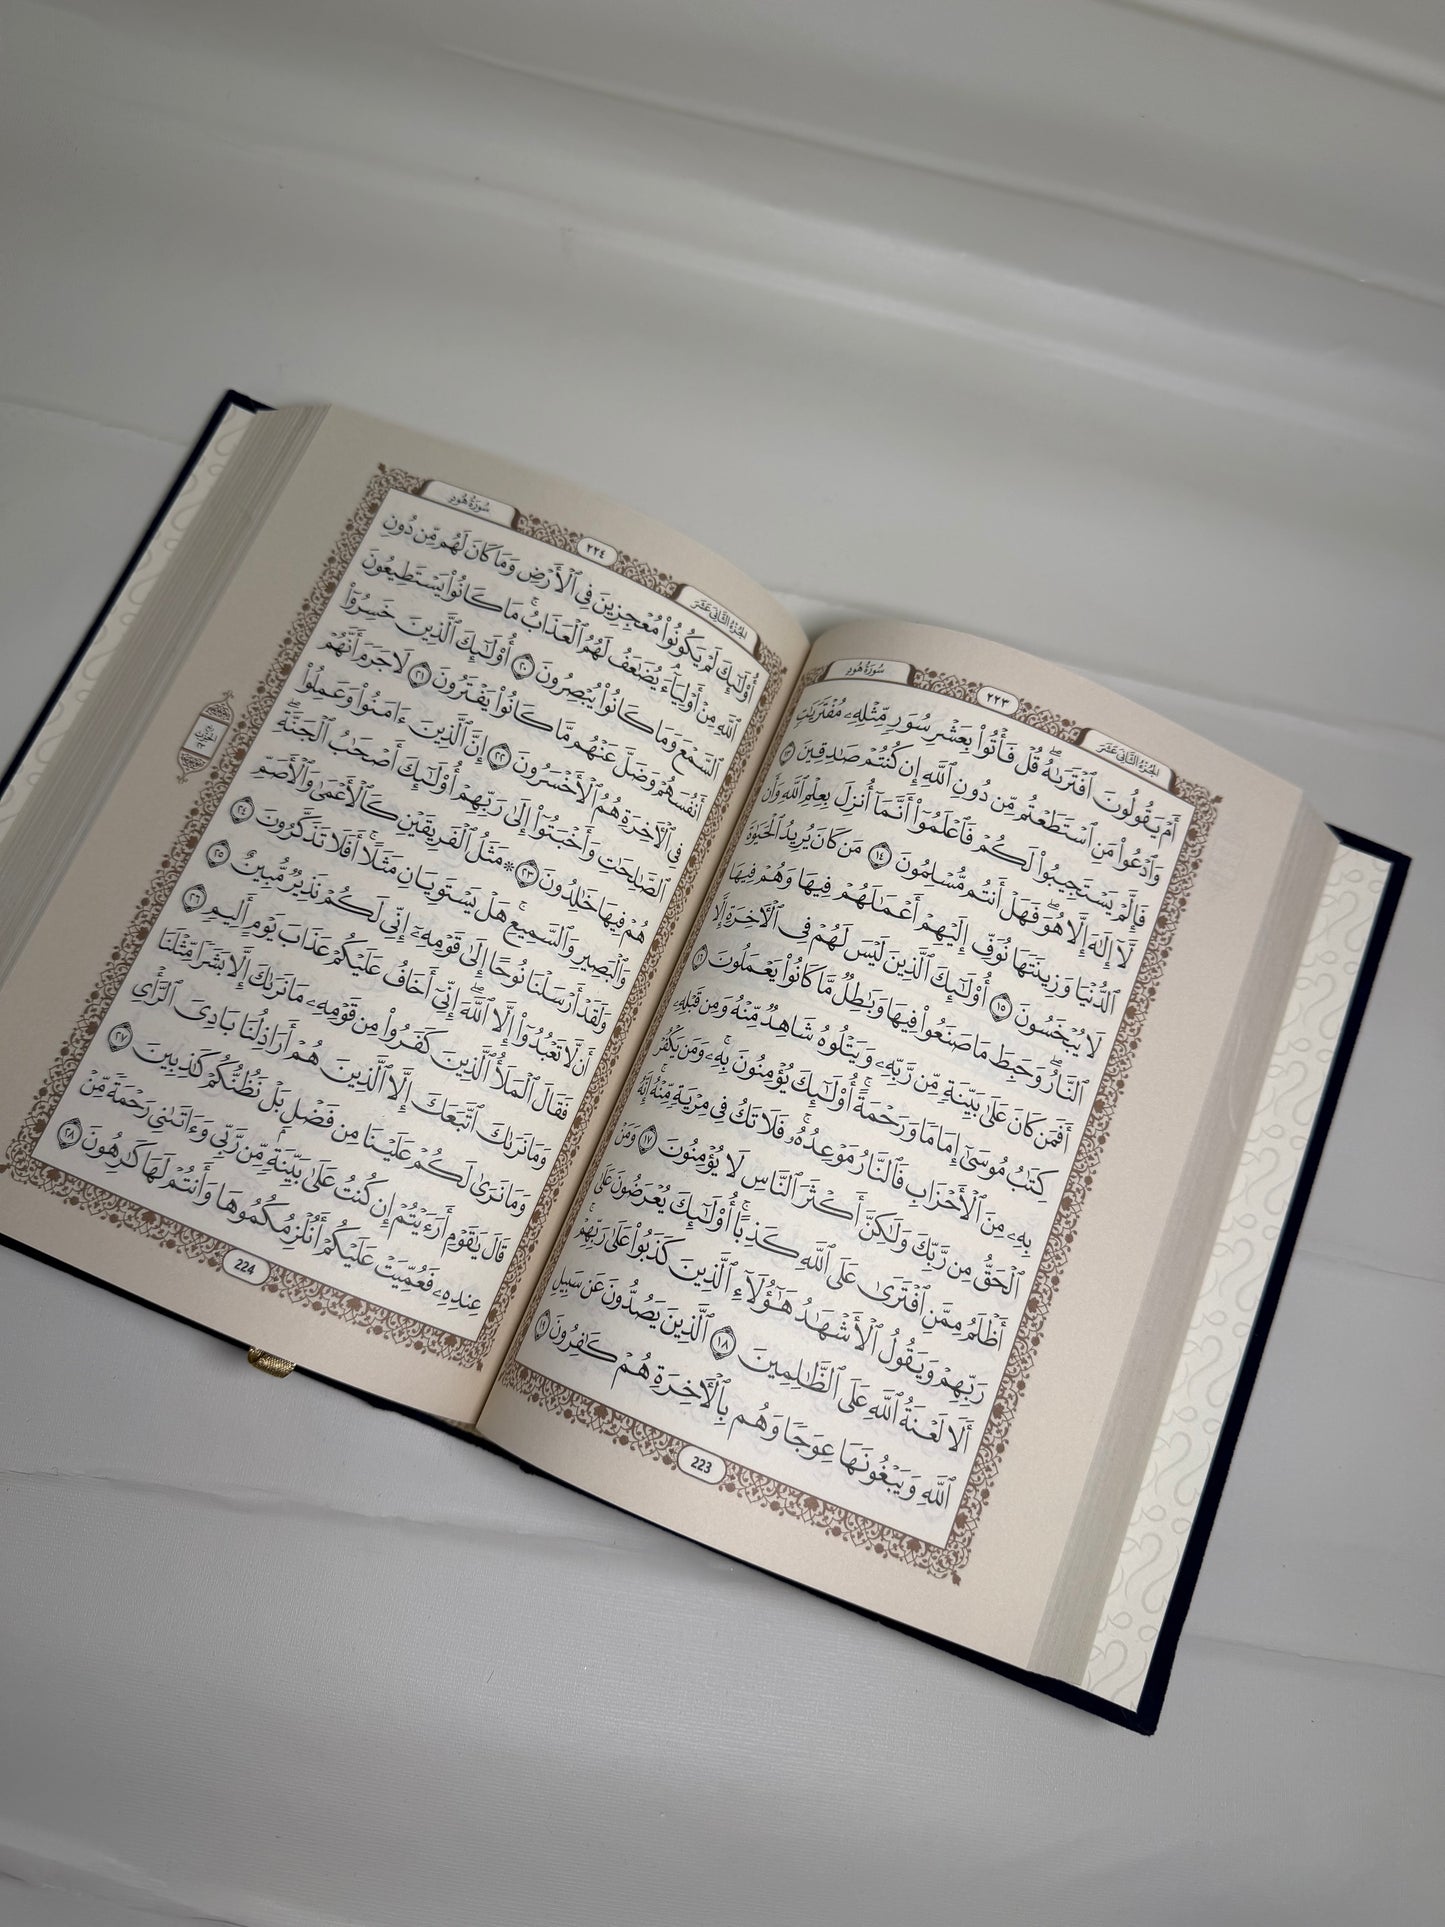 سُورَةُ هُودٍ
٢٢٣
الجُزْءُ الثَّانِيَ عَشَرَ
أَمْ يَقُولُونَ ٱفْتَرَىٰهُۖ قُلْ فَأْتُوا۟ بِعَشْرِ سُوَرٍ مِّثْلِهِۦ مُفْتَرَيَٰتٍ
وَٱدْعُوا۟ مَنِ ٱسْتَطَعْتُم مِّن دُونِ ٱللَّهِ إِن كُنتُمْ صَٰدِقِينَ ١٣
فَإِلَّمْ يَسْتَجِيبُوا۟ لَكُمْ فَٱعْلَمُوٓا۟ أَنَّمَآ أُنزِلَ بِعِلْمِ ٱللَّهِ وَأَن
لَّآ إِلَٰهَ إِلَّا هُوَۖ فَهَلْ أَنتُم مُّسْلِمُونَ ١٤ مَن كَانَ يُرِيدُ ٱلْحَيَوٰةَ
ٱلدُّنْيَا وَزِينَتَهَا نُوَفِّ إِلَيْهِمْ أَعْمَٰلَهُمْ فِيهَا وَهُمْ فِيهَا
لَا يُبْخَسُونَ ١٥ أُو۟لَٰٓئِكَ ٱلَّذِينَ لَيْسَ لَهُمْ فِى ٱلْءَاخِرَةِ إِلَّا
ٱلنَّارُۖ وَحَبِطَ مَا صَنَعُوا۟ فِيهَا وَبَٰطِلٌ مَّا كَانُوا۟ يَعْمَلُونَ ١٦
أَفَمَن كَانَ عَلَىٰ بَيِّنَةٍ مِّن رَّبِّهِۦ وَيَتْلُوهُ شَاهِدٌ مِّنْهُ وَمِن قَبْلِهِۦ
كِتَٰبُ مُوسَىٰٓ إِمَامًا وَرَحْمَةًۚ أُو۟لَٰٓئِكَ يُؤْمِنُونَ بِهِۦۚ وَمَن يَكْفُرْ
بِهِۦ مِنَ ٱلْأَحْزَابِ فَٱلنَّارُ مَوْعِدُهُۥۚ فَلَا تَكُ فِى مِرْيَةٍ مِّنْهُۚ إِنَّهُ
ٱلْحَقُّ مِن رَّبِّكَ وَلَٰكِنَّ أَكْثَرَ ٱلنَّاسِ لَا يُؤْمِنُونَ ١٧ وَمَنْ
أَظْلَمُ مِمَّنِ ٱفْتَرَىٰ عَلَى ٱللَّهِ كَذِبًاۚ أُو۟لَٰٓئِكَ يُعْرَضُونَ عَلَىٰ
رَبِّهِمْ وَيَقُولُ ٱلْأَشْهَٰدُ هَٰٓؤُلَآءِ ٱلَّذِينَ كَذَبُوا۟ عَلَىٰ رَبِّهِمْۚ
أَلَا لَعْنَةُ ٱللَّهِ عَلَى ٱلظَّٰلِمِينَ ١٨ ٱلَّذِينَ يَصُدُّونَ عَن سَبِيلِ
ٱللَّهِ وَيَبْغُونَهَا عِوَجًا وَهُم بِٱلْءَاخِرَةِ هُمْ كَٰفِرُونَ ١٩
223
سُورَةُ هُودٍ
٢٢٤
الجُزْءُ الثَّانِيَ عَشَرَ
أُو۟لَٰٓئِكَ لَمْ يَكُونُوا۟ مُعْجِزِينَ فِى ٱلْأَرْضِ وَمَا كَانَ لَهُم مِّن دُونِ
ٱللَّهِ مِنْ أَوْلِيَآءَۘ يُضَٰعَفُ لَهُمُ ٱلْعَذَابُۚ مَا كَانُوا۟ يَسْتَطِيعُونَ
ٱلسَّمْعَ وَمَا كَانُوا۟ يُبْصِرُونَ ٢٠ أُو۟لَٰٓئِكَ ٱلَّذِينَ خَسِرُوٓا۟
أَنفُسَهُمْ وَضَلَّ عَنْهُم مَّا كَانُوا۟ يَفْتَرُونَ ٢١ لَا جَرَمَ أَنَّهُمْ
فِى ٱلْءَاخِرَةِ هُمُ ٱلْأَخْسَرُونَ ٢٢ إِنَّ ٱلَّذِينَ ءَامَنُوا۟ وَعَمِلُوا۟
ٱلصَّٰلِحَٰتِ وَأَخْبَتُوٓا۟ إِلَىٰ رَبِّهِمْ أُو۟لَٰٓئِكَ أَصْحَٰبُ ٱلْجَنَّةِۖ
هُمْ فِيهَا خَٰلِدُونَ ٢٣ ۞ مَثَلُ ٱلْفَرِيقَيْنِ كَٱلْأَعْمَىٰ وَٱلْأَصَمِّ
وَٱلْبَصِيرِ وَٱلسَّمِيعِۚ هَلْ يَسْتَوِيَانِ مَثَلًاۚ أَفَلَا تَذَكَّرُونَ ٢٤
وَلَقَدْ أَرْسَلْنَا نُوحًا إِلَىٰ قَوْمِهِۦٓ إِنِّى لَكُمْ نَذِيرٌ مُّبِينٌ ٢٥
أَن لَّا تَعْبُدُوٓا۟ إِلَّا ٱللَّهَۖ إِنِّىٓ أَخَافُ عَلَيْكُمْ عَذَابَ يَوْمٍ أَلِيمٍ ٢٦
فَقَالَ ٱلْمَلَأُ ٱلَّذِينَ كَفَرُوا۟ مِن قَوْمِهِۦ مَا نَرَىٰكَ إِلَّا بَشَرًا مِّثْلَنَا
وَمَا نَرَىٰكَ ٱتَّبَعَكَ إِلَّا ٱلَّذِينَ هُمْ أَرَاذِلُنَا بَادِىَ ٱلرَّأْىِ
وَمَا نَرَىٰ لَكُمْ عَلَيْنَا مِن فَضْلٍۭ بَلْ نَظُنُّكُمْ كَٰذِبِينَ ٢٧
قَالَ يَٰقَوْمِ أَرَءَيْتُمْ إِن كُنتُ عَلَىٰ بَيِّنَةٍ مِّن رَّبِّى وَءَاتَىٰنِى رَحْمَةً مِّنْ
عِندِهِۦ فَعُمِّيَتْ عَلَيْكُمْ أَنُلْزِمُكُمُوهَا وَأَنتُمْ لَهَا كَٰرِهُونَ ٢٨
224